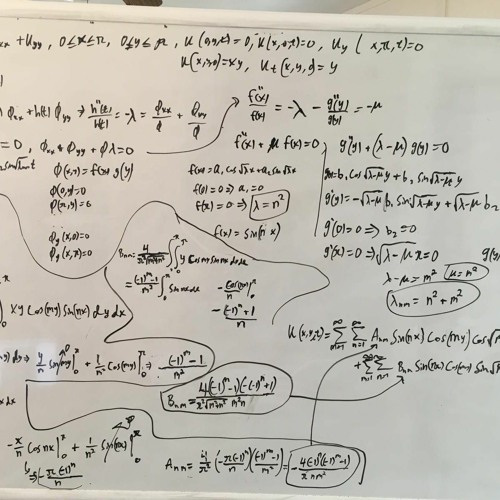 xx + Uyy , 0≤x≤π, 0≤y≤π, U(0,y,t)=0, U(x,0,t)=0, Uy(x,π,t)=0
U(x,y,0)=xy, Ut(x,y,0)=y
Φxx + h(t) Φyy ⇒ h''(t)/h(t) = -λ = Φxx/Φ + Φyy/Φ
f''(x)/f(x) = -λ - g''(y)/g(y) = -μ
=0, Φxx+Φyy+Φλ=0
f''(x)+μ f(x)=0
g''(y)+(λ-μ) g(y)=0
Φ(x,y)=f(x) g(y)
Φ(0,y)=0
Φy(x,0)=0
Φy(x,π)=0
f(x)=a, cos√λx+a2 sin√λx
f(0)=0⇒a,=0
f(x)=0⇒ λ=n²
f(x)=sin(nx)
g=b, cos√λ-μ y+b2 sin√λ-μ y
g'(y)=-√λ-μ b, sin√λ-μ y+√λ-μ b2
g'(0)=0⇒ b2=0
g'(π)=0⇒√λ-μ π=0
g(y)=
λ-μ=m² μ=m²
λnm=n²+m²
Bnm=4/π²√n²+m² ∫∫ y cos my sin nx dx dx
=(-1)^m-1/m² ∫ sin nx dx
-cos(nx)/n |0^π
-(-1)^n+1/n
xy cos(my) sin(nx) dy dx
y/n sin(my)|0^π + 1/n² cos(my)|0^π ⇒ (-1)^m-1/m²
Bnm=4((-1)^m-1)(-(-1)^n+1)/π²√n²+m² m²n
U(x,y,t)=∑∑ Anm sin(nx) cos(my) cos√
+∑∑ Bnm sin(nx) cos(my) sin√
-x/n cos nx|0^π + 1/n² sin(nx)|0^π
⇒ -π(-1)^n/n
Anm=4/π² (-π(-1)^n/n)((-1)^m-1/m²) = -4(-1)^n((-1)^m-1)/π nm²